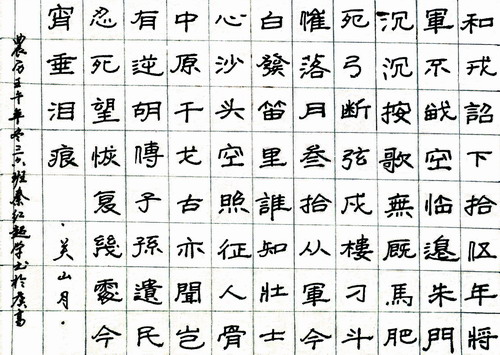 和戎詔下拾伍年將
軍不戰空临邊朱門
沉沉按歌無厩馬肥
死弓断弦戍樓刁斗
惟落月叁拾从軍今
白發笛里誰知壯士
心沙头空照征人骨
中原干戈古亦聞岂
有逆胡傳子孫遺民
忍死望恢复幾處今
宵垂泪痕
·关山月·
農历壬午年冬三八班秦红超学书於廣高